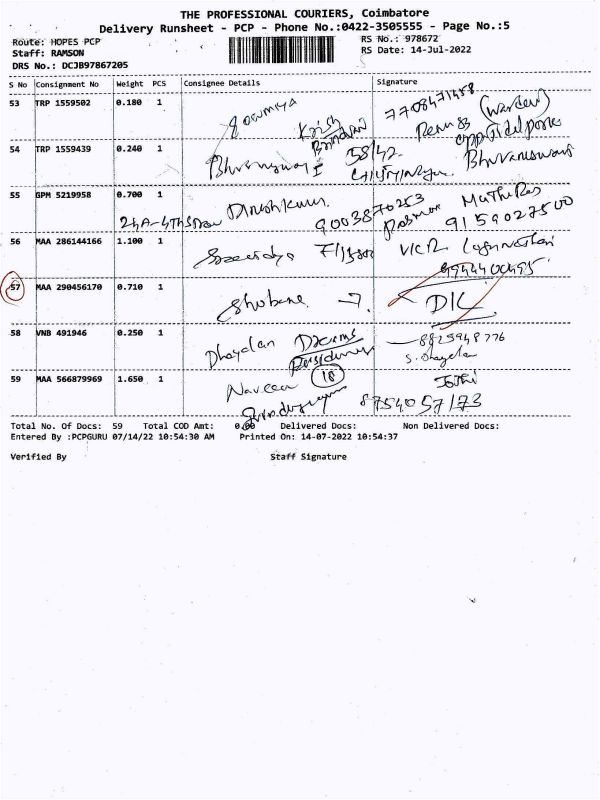 THE PROFESSIONAL COURIERS, Coimbatore
Delivery Runsheet - PCP - Phone No.:0422-3505555 - Page No.:5
Route: HOPES PCP RS No.: 978672
Staff: RAMSON RS Date: 14-Jul-2022
DRS No.: DCJB97867205
S No Consignment No Weight PCS Consignee Details Signature
53 TRP 1559502 0.180 1 Sowmya Krish 7708471458 (warden)
54 TRP 1559439 0.240 1 58/42 Bhuvaneswari
55 GPM 5219958 0.700 1 Dineshkumar 9003870253
24A-4th 9159027500
56 MAA 286144166 1.100 1
9944400495
57 MAA 290456170 0.710 1 Shobana D/L
58 VNB 491946 0.250 1 Dhayalan Dreams 8825948776
S. Dhayalan
59 MAA 566879969 1.650 1 Naveen 18 Jothi
8754057173
Total No. Of Docs: 59 Total COD Amt: 0.00 Delivered Docs: Non Delivered Docs:
Entered By :PCPGURU 07/14/22 10:54:30 AM Printed On: 14-07-2022 10:54:37
Verified By Staff Signature